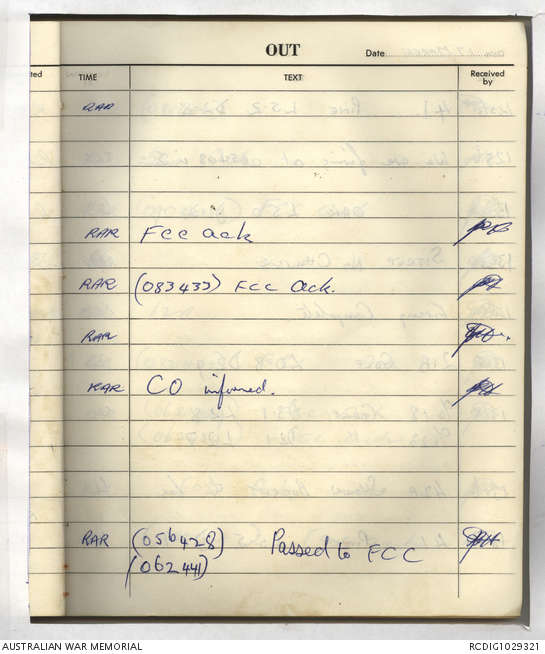 OUT
Date
TIME
TEXT
Received by
RAR
RAR FCC ack
RAR (083433) FCC Ack.
RAR
RAR CO informed.
RAR (056428) Passed to FCC
(062441)
AUSTRALIAN WAR MEMORIAL
RCDIG1029321